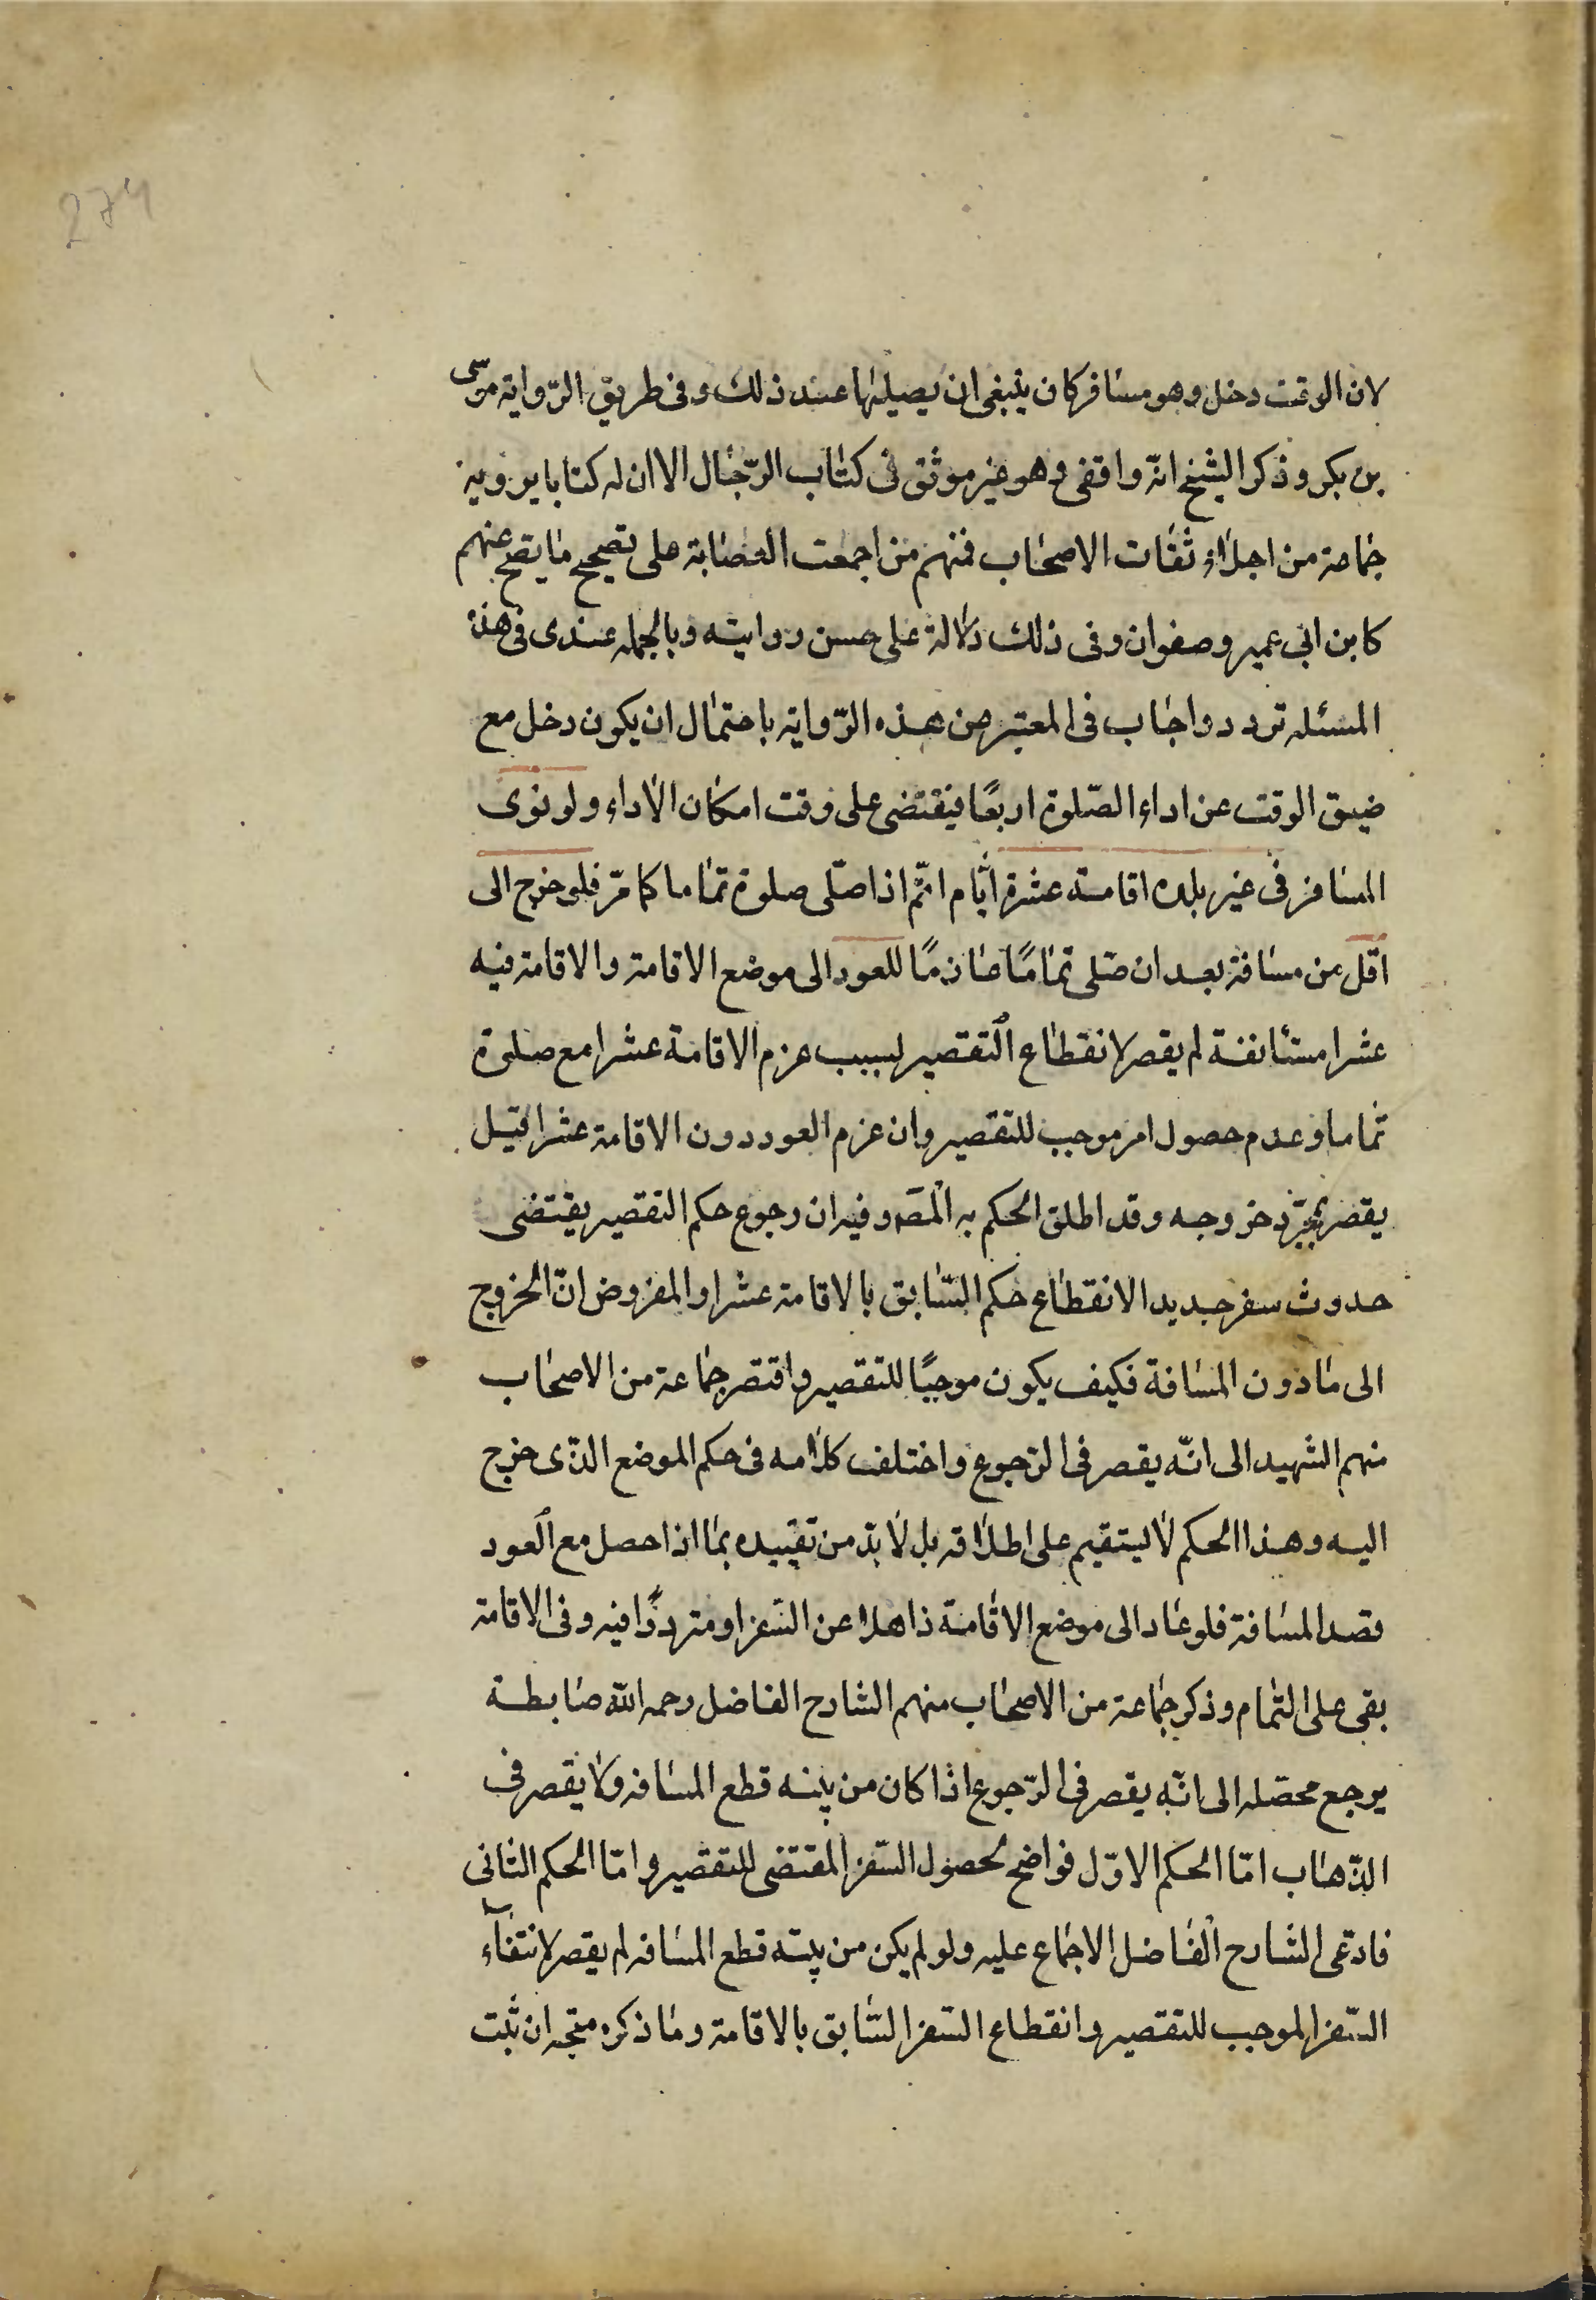 274
لان الوقت دخل وهو مسافر كان ينبغى ان يصيلها عند ذلك وفى طريق الرّواية موسى
بن بكر وذكر الشيخ انّه واقفى وهو غير موثق فى كتاب الرّجال الا ان له كتابا يرويه
جماعة من اجلاء ثقات الاصحاب فمنهم من اجمعت العصابة على تصحيح ما يصح عنهم
كابن ابى عمير وصفوان وفى ذلك دلالة على حسن روايته وبالجمله عندى فى هذه
المسئله تردد واجاب فى المعتبر من هذه الرّواية باحتمال ان يكون دخل مع
ضيق الوقت عن اداء الصّلوة اربعًا فيقتضى على وقت امكان الاداء ولو نوى
المسافر فى غير بلده اقامة عشرة ايّام اتمّ اذا صلّى صلوة تماما كما مرّ فلو خرج الى
اقل من مسافة بعد ان صلى تمامًا عازمًا للعود الى موضع الاقامة والاقامة فيه
عشرا مستانفة لم يقصر لانقطاع التقصير بسبب عزم الاقامة عشرا مع صلوة
تماما وعدم حصول امر موجب للتقصير وان عزم العود دون الاقامة عشرا قيل
يقصر بمجرّد خروجه وقد اطلق الحكم به المصَ وفيه ان رجوع حكم التقصير يقتضى
حدوث سفر جديد الانقطاع حكم السّابق بالاقامة عشرا والمفروض انّ الخروج
الى ما دون المسافة فكيف يكون موجبًا للتقصير واقتصر جماعة من الاصحاب
منهم الشهيد الى انّه يقصر فى الرّجوع واختلف كلامه فى حكم الموضع الذّى خرج
اليه وهذا الحكم لا ليستقيم على اطلاقه بل لا بدّ من تقييده بما اذا حصل مع العود
قصد المسافة فلو عاد الى موضع الاقامة ذاهلا عن السّفر او متردّدًا فيه وفى الاقامة
بقى على التمام وذكر جماعة من الاصحاب منهم الشارح الفاضل رحمه الله ضابطة
يرجع محصّله الى انّه يقصر فى الرّجوع اذا كان من نيته قطع المسافه ولا يقصر فى
الذّهاب امّا الحكم الاوّل فواضح لحصول السّفر المقتضى للتقصير وامّا الحكم الثانى
فادعى الشارح الفاضل الاجماع عليه ولو لم يكن من نيته قطع المسافه لم يقصر لانتفآء
السّفر الموجب للتقصير وانقطاع السّفر السّابق بالاقامة وما ذكره متجه ان ثبت